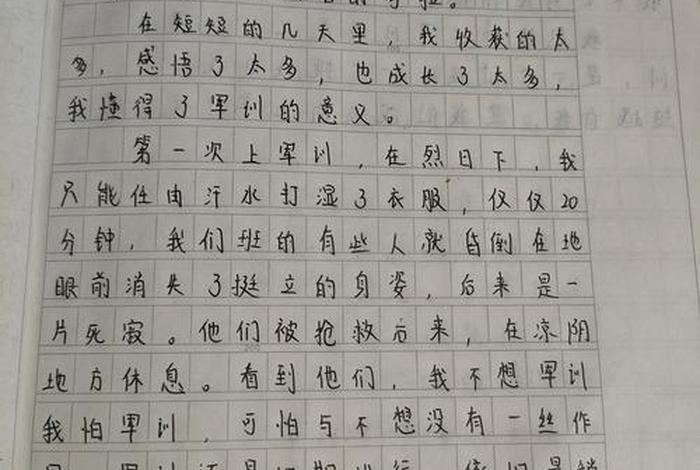 在短短的几天里，我收获的太
多，感悟了太多，也成长了太多，
我懂得了军训的意义。
第一次上军训，在烈日下，我
只能任由汗水打湿了衣服，仅仅20
分钟，我们班的有些人就昏倒在地
眼前消失了挺立的身姿，后来是一
片死寂。他们被抢救后来，在凉阴
地方休息。看到他们，我不想军训
我怕军训，可怕与不想没有一丝作